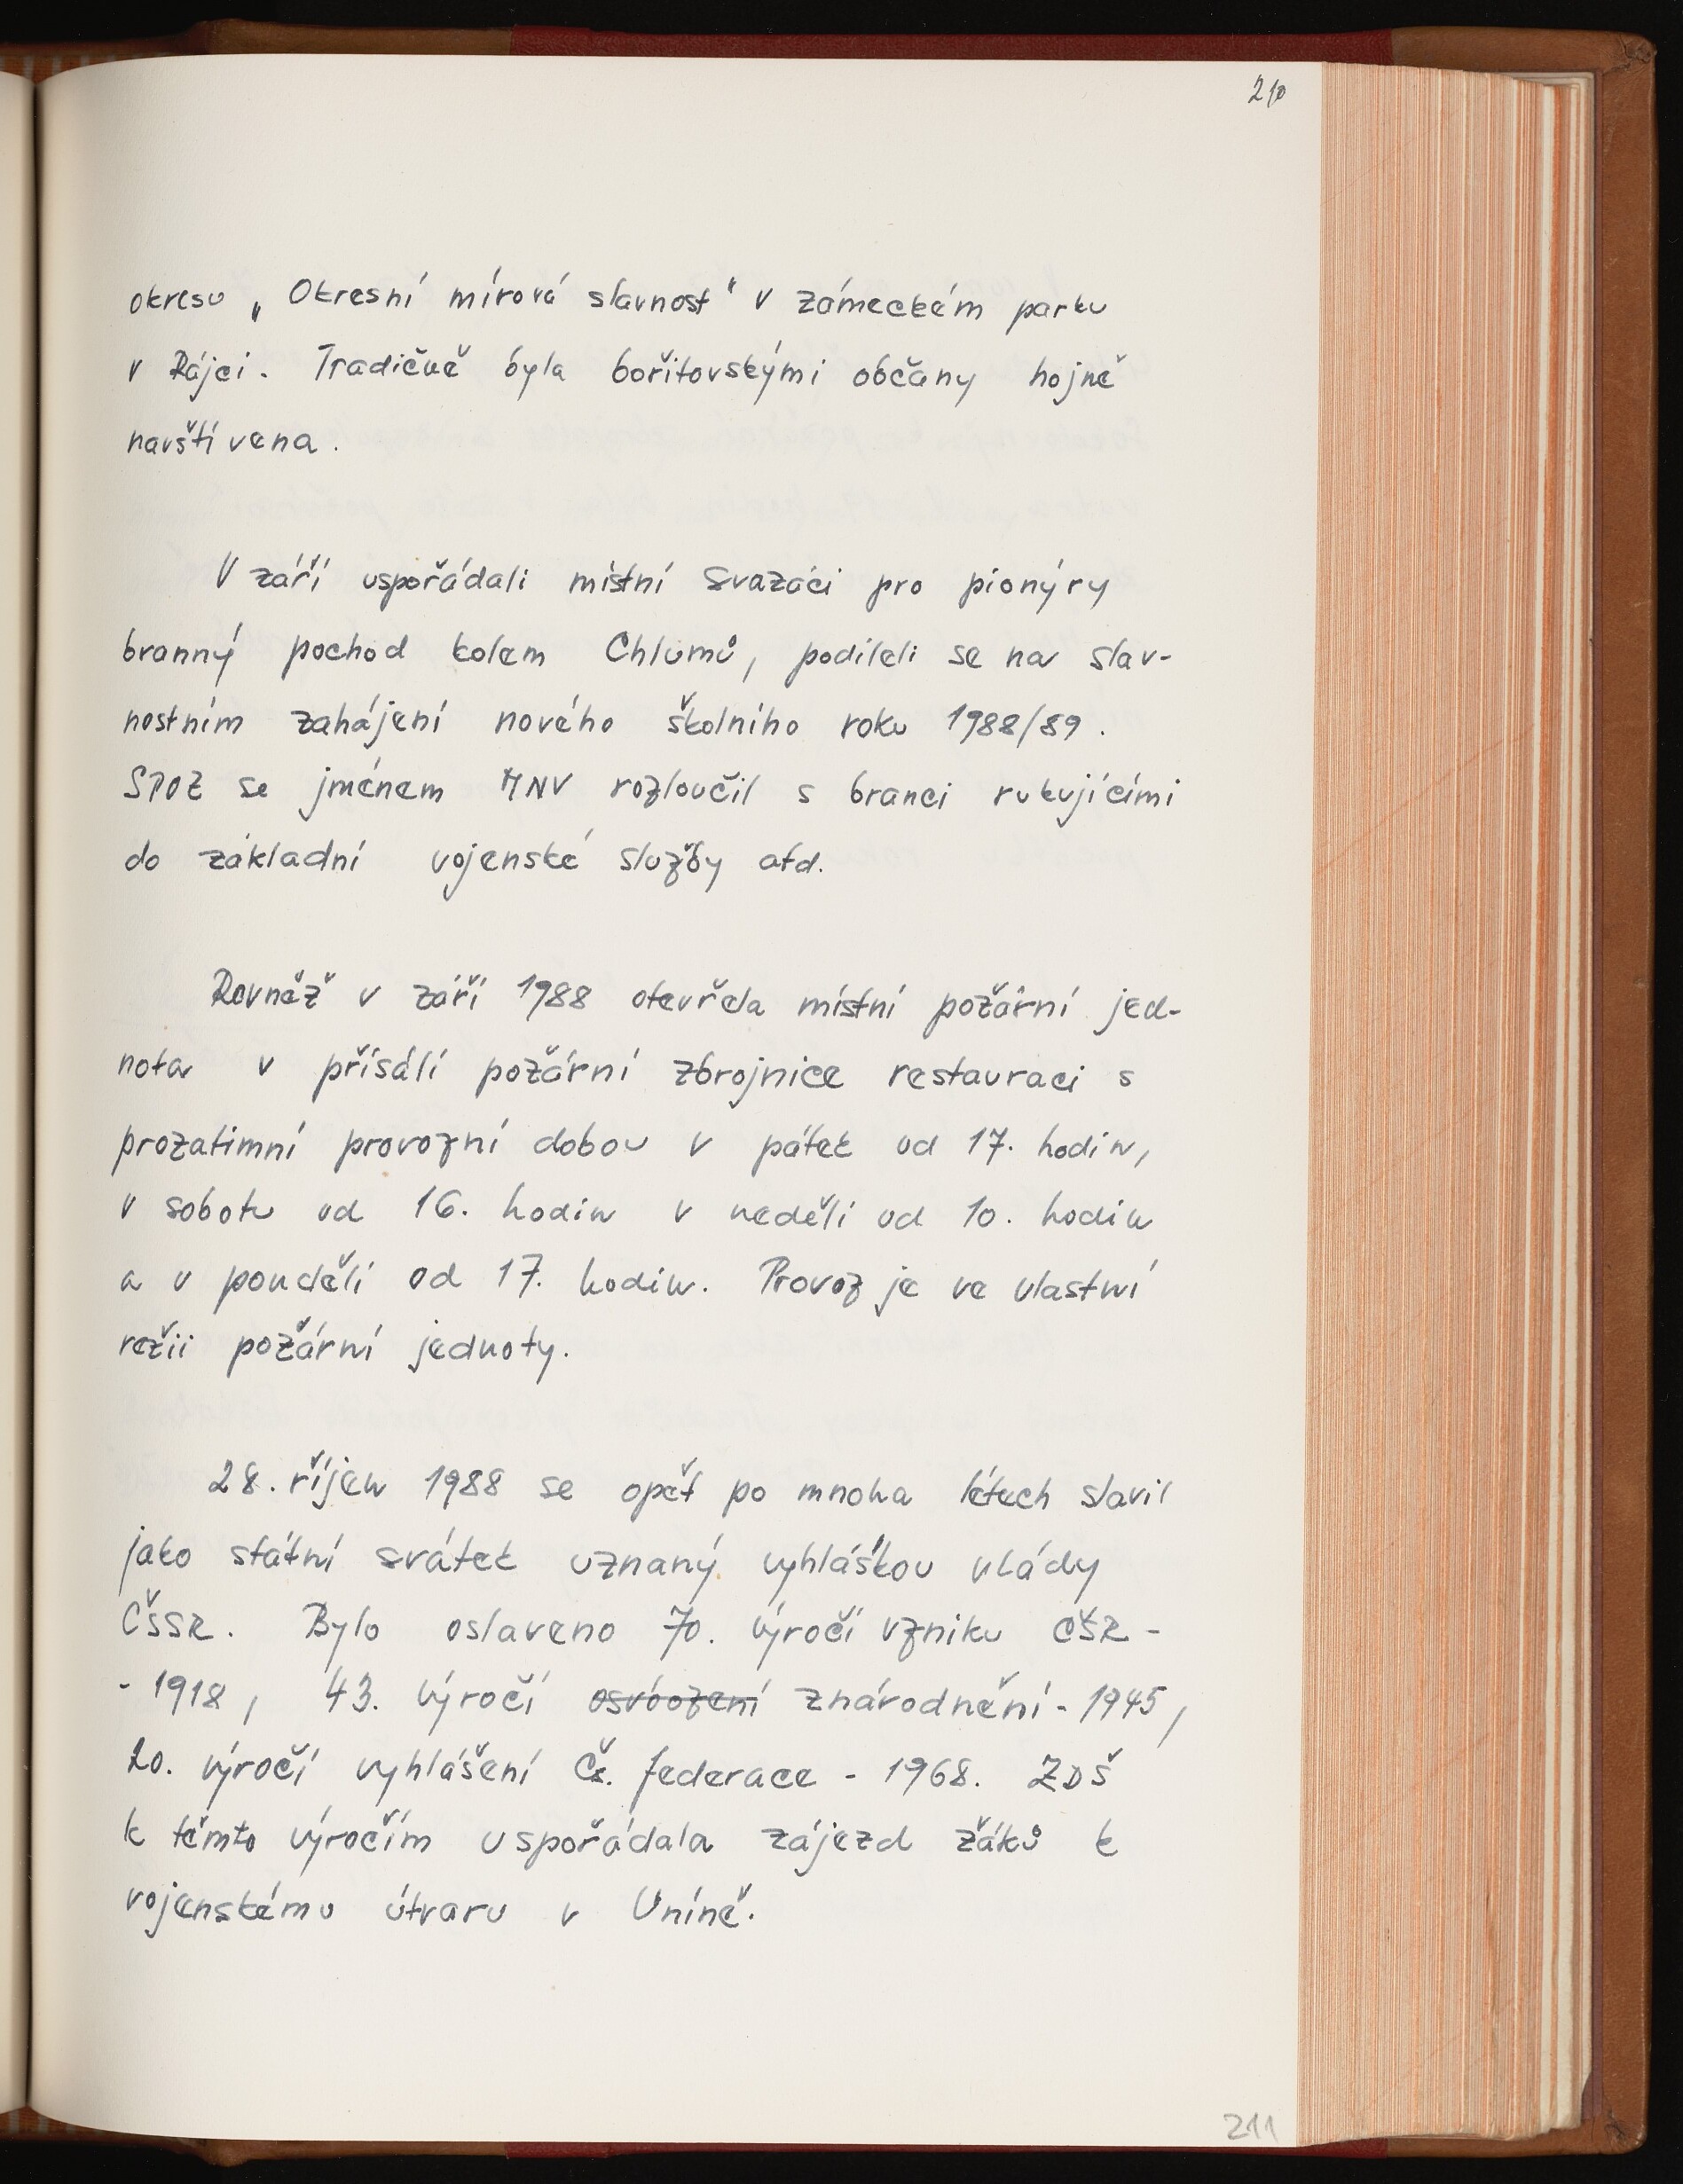 210
okresu „Okresní mírová slavnost" v zámeckém parku
v Rájci. Tradičně byla bořitovskými občany hojně
navštívena.
V září uspořádali místní svazáci pro pionýry
branný pochod kolem Chlumů, podíleli se na slav-
nostním zahájení nového školního roku 1988/89.
SPOZ se jménem MNV rozloučil s branci rukujícími
do základní vojenské služby atd.
Rovněž v září 1988 otevřela místní požární jed-
nota v přísálí požární zbrojnice restauraci s
prozatimní provozní dobou v pátek od 17. hodin,
v sobotu od 16. hodin v neděli od 10. hodin
a v pondělí od 17. hodin. Provoz je ve vlastní
režii požární jednoty.
28. říjen 1988 se opět po mnoha létech slavil
jako státní svátek uznaný vyhláškou vlády
ČSSR. Bylo oslaveno 70. výročí vzniku ČSR -
- 1918, 43. výročí osvobození znárodnění - 1945,
20. výročí vyhlášení Čs. federace - 1968. ZDŠ
k těmto výročím uspořádala zájezd žáků k
vojenskému útvaru v Úníně.
211